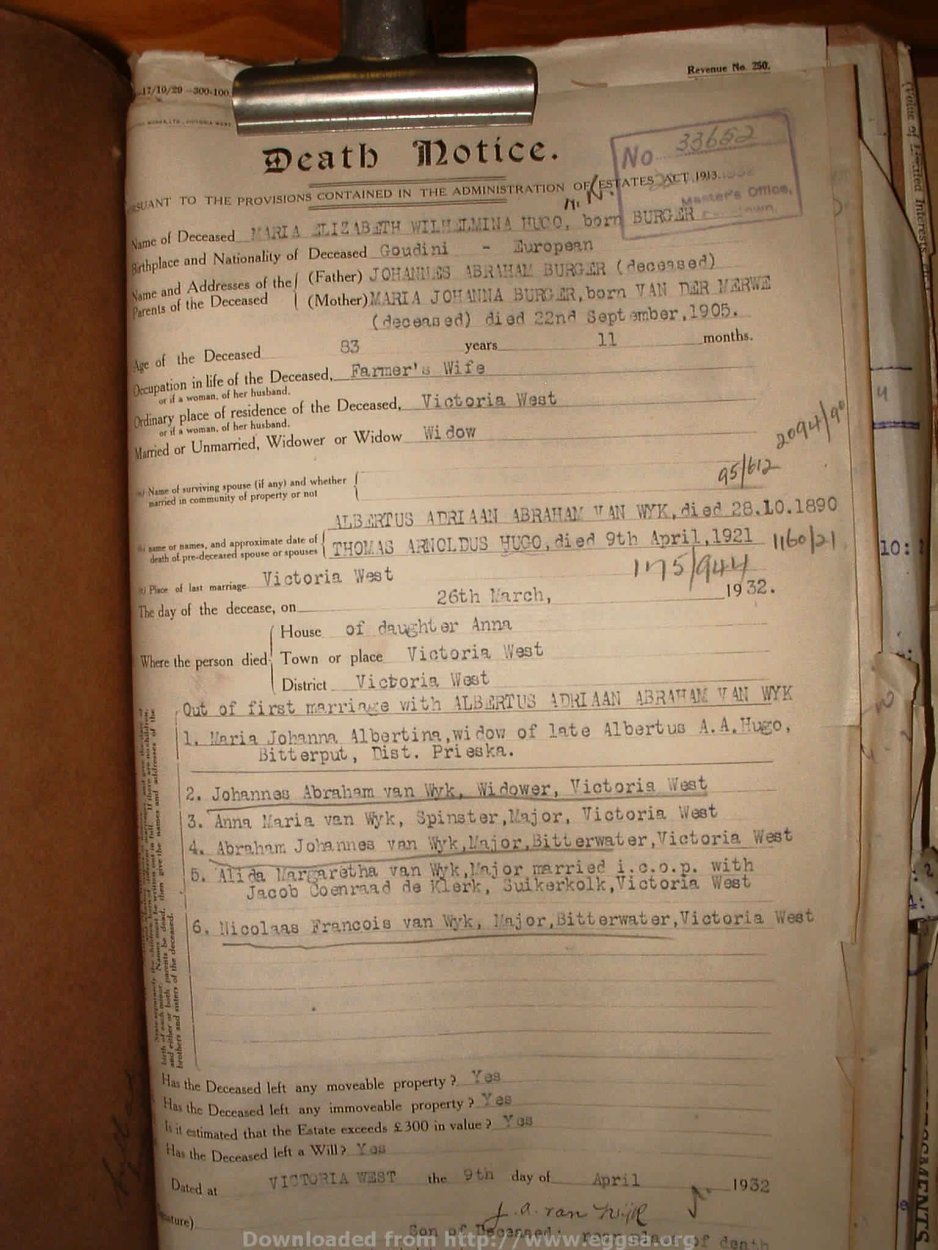 Revenue No. 250.
17/10/29 -300-100
Death Notice.
No 33652
Master's Office,
PURSUANT TO THE PROVISIONS CONTAINED IN THE ADMINISTRATION OF ESTATES ACT, 1913.
Name of Deceased MARIA ELIZABETH WILHELMINA HUGO, born BURGER
Birthplace and Nationality of Deceased Goudini - European
Name and Addresses of the Parents of the Deceased
(Father) JOHANNES ABRAHAM BURGER (deceased)
(Mother) MARIA JOHANNA BURGER, born VAN DER MERWE
(deceased) died 22nd September, 1905.
Age of the Deceased 83 years 11 months.
Occupation in life of the Deceased, Farmer's Wife
or if a woman, of her husband.
Ordinary place of residence of the Deceased, Victoria West
or if a woman, of her husband.
Married or Unmarried, Widower or Widow Widow
2094/90
95/612
Name of surviving spouse (if any) and whether
married in community of property or not
ALBERTUS ADRIAAN ABRAHAM VAN WYK, died 28.10.1890
name or names, and approximate date of
death of pre-deceased spouse or spouses
THOMAS ARNOLDUS HUGO, died 9th April, 1921 1160/21
(c) Place of last marriage Victoria West
175/944
The day of the decease, on 26th March, 1932.
Where the person died
House of daughter Anna
Town or place Victoria West
District Victoria West
Out of first marriage with ALBERTUS ADRIAAN ABRAHAM VAN WYK
1. Maria Johanna Albertina, widow of late Albertus A.A.Hugo,
Bitterput, Dist. Prieska.
2. Johannes Abraham van Wyk, Widower, Victoria West
3. Anna Maria van Wyk, Spinster, Major, Victoria West
4. Abraham Johannes van Wyk, Major, Bitterwater, Victoria West
5. Alida Margaretha van Wyk, Major married i.c.o.p. with
Jacob Coenraad de Klerk, Suikerkolk, Victoria West
6. Nicolaas Francois van Wyk, Major, Bitterwater, Victoria West
Has the Deceased left any moveable property? Yes
Has the Deceased left any immoveable property? Yes
Is it estimated that the Estate exceeds £300 in value? Yes
Has the Deceased left a Will? Yes
Dated at VICTORIA WEST the 9th day of April 1932
(Signature) J. A. van Wyk
Son of Deceased;
of death
Downloaded from http://www.eggsa.org